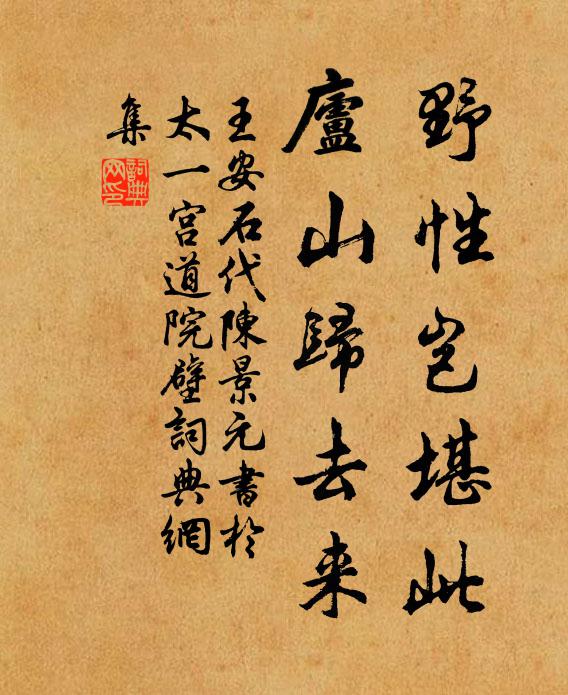 野性岂堪此
廬山歸去来
王安石代陳景元書於
太一宮道院壁詞典網
集
詞典
网印